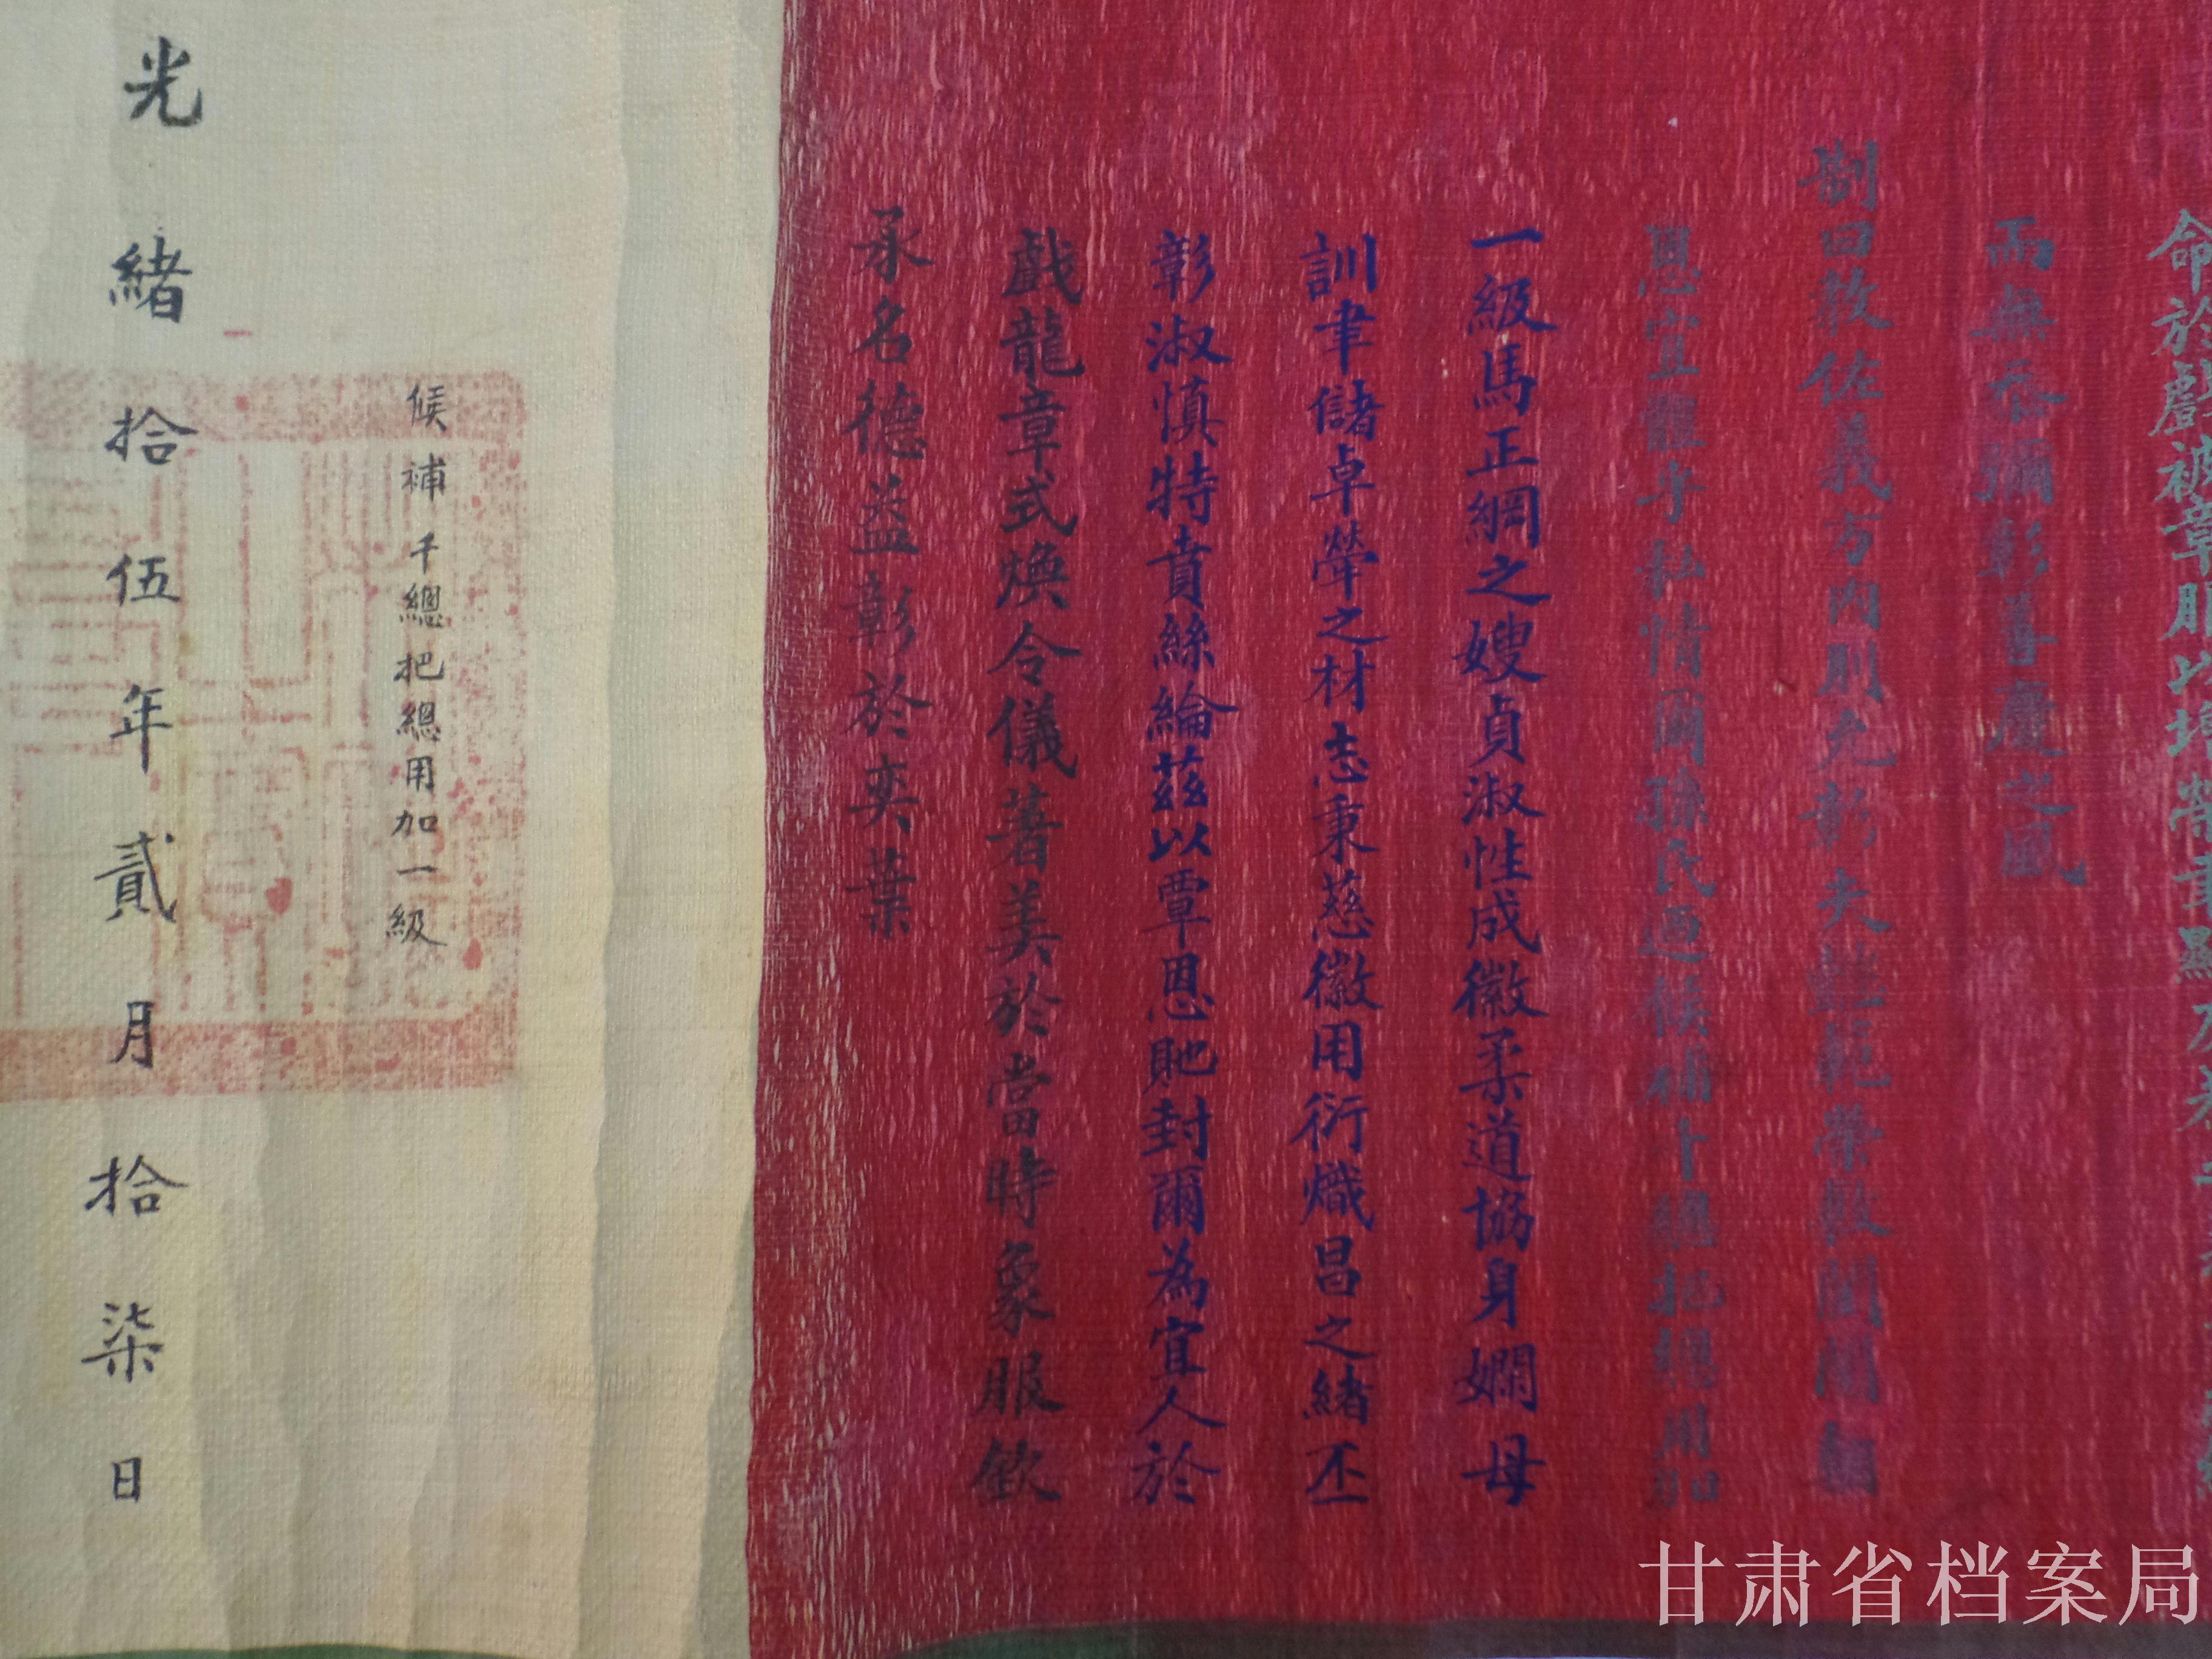 命於戲被章服以增榮聿顯
而無忝彌彰善慶之風
制曰敎佐義方內則允彰夫懿範榮敷閨闈朝
恩宜體乎私情爾孫氏迺候補千總把總用加
一級馬正綱之嫂貞淑性成徽柔道協身嫻母
訓聿儲卓犖之材志秉慈徽用衍熾昌之緖丕
彰淑慎特賁絲綸茲以覃恩貤封爾為宜人於
戲龍章式煥令儀著美於當時象服欽
承名德益彰於奕葉
候補千總把總用加一級
光緒拾伍年貳月拾柒日
甘肃省档案局